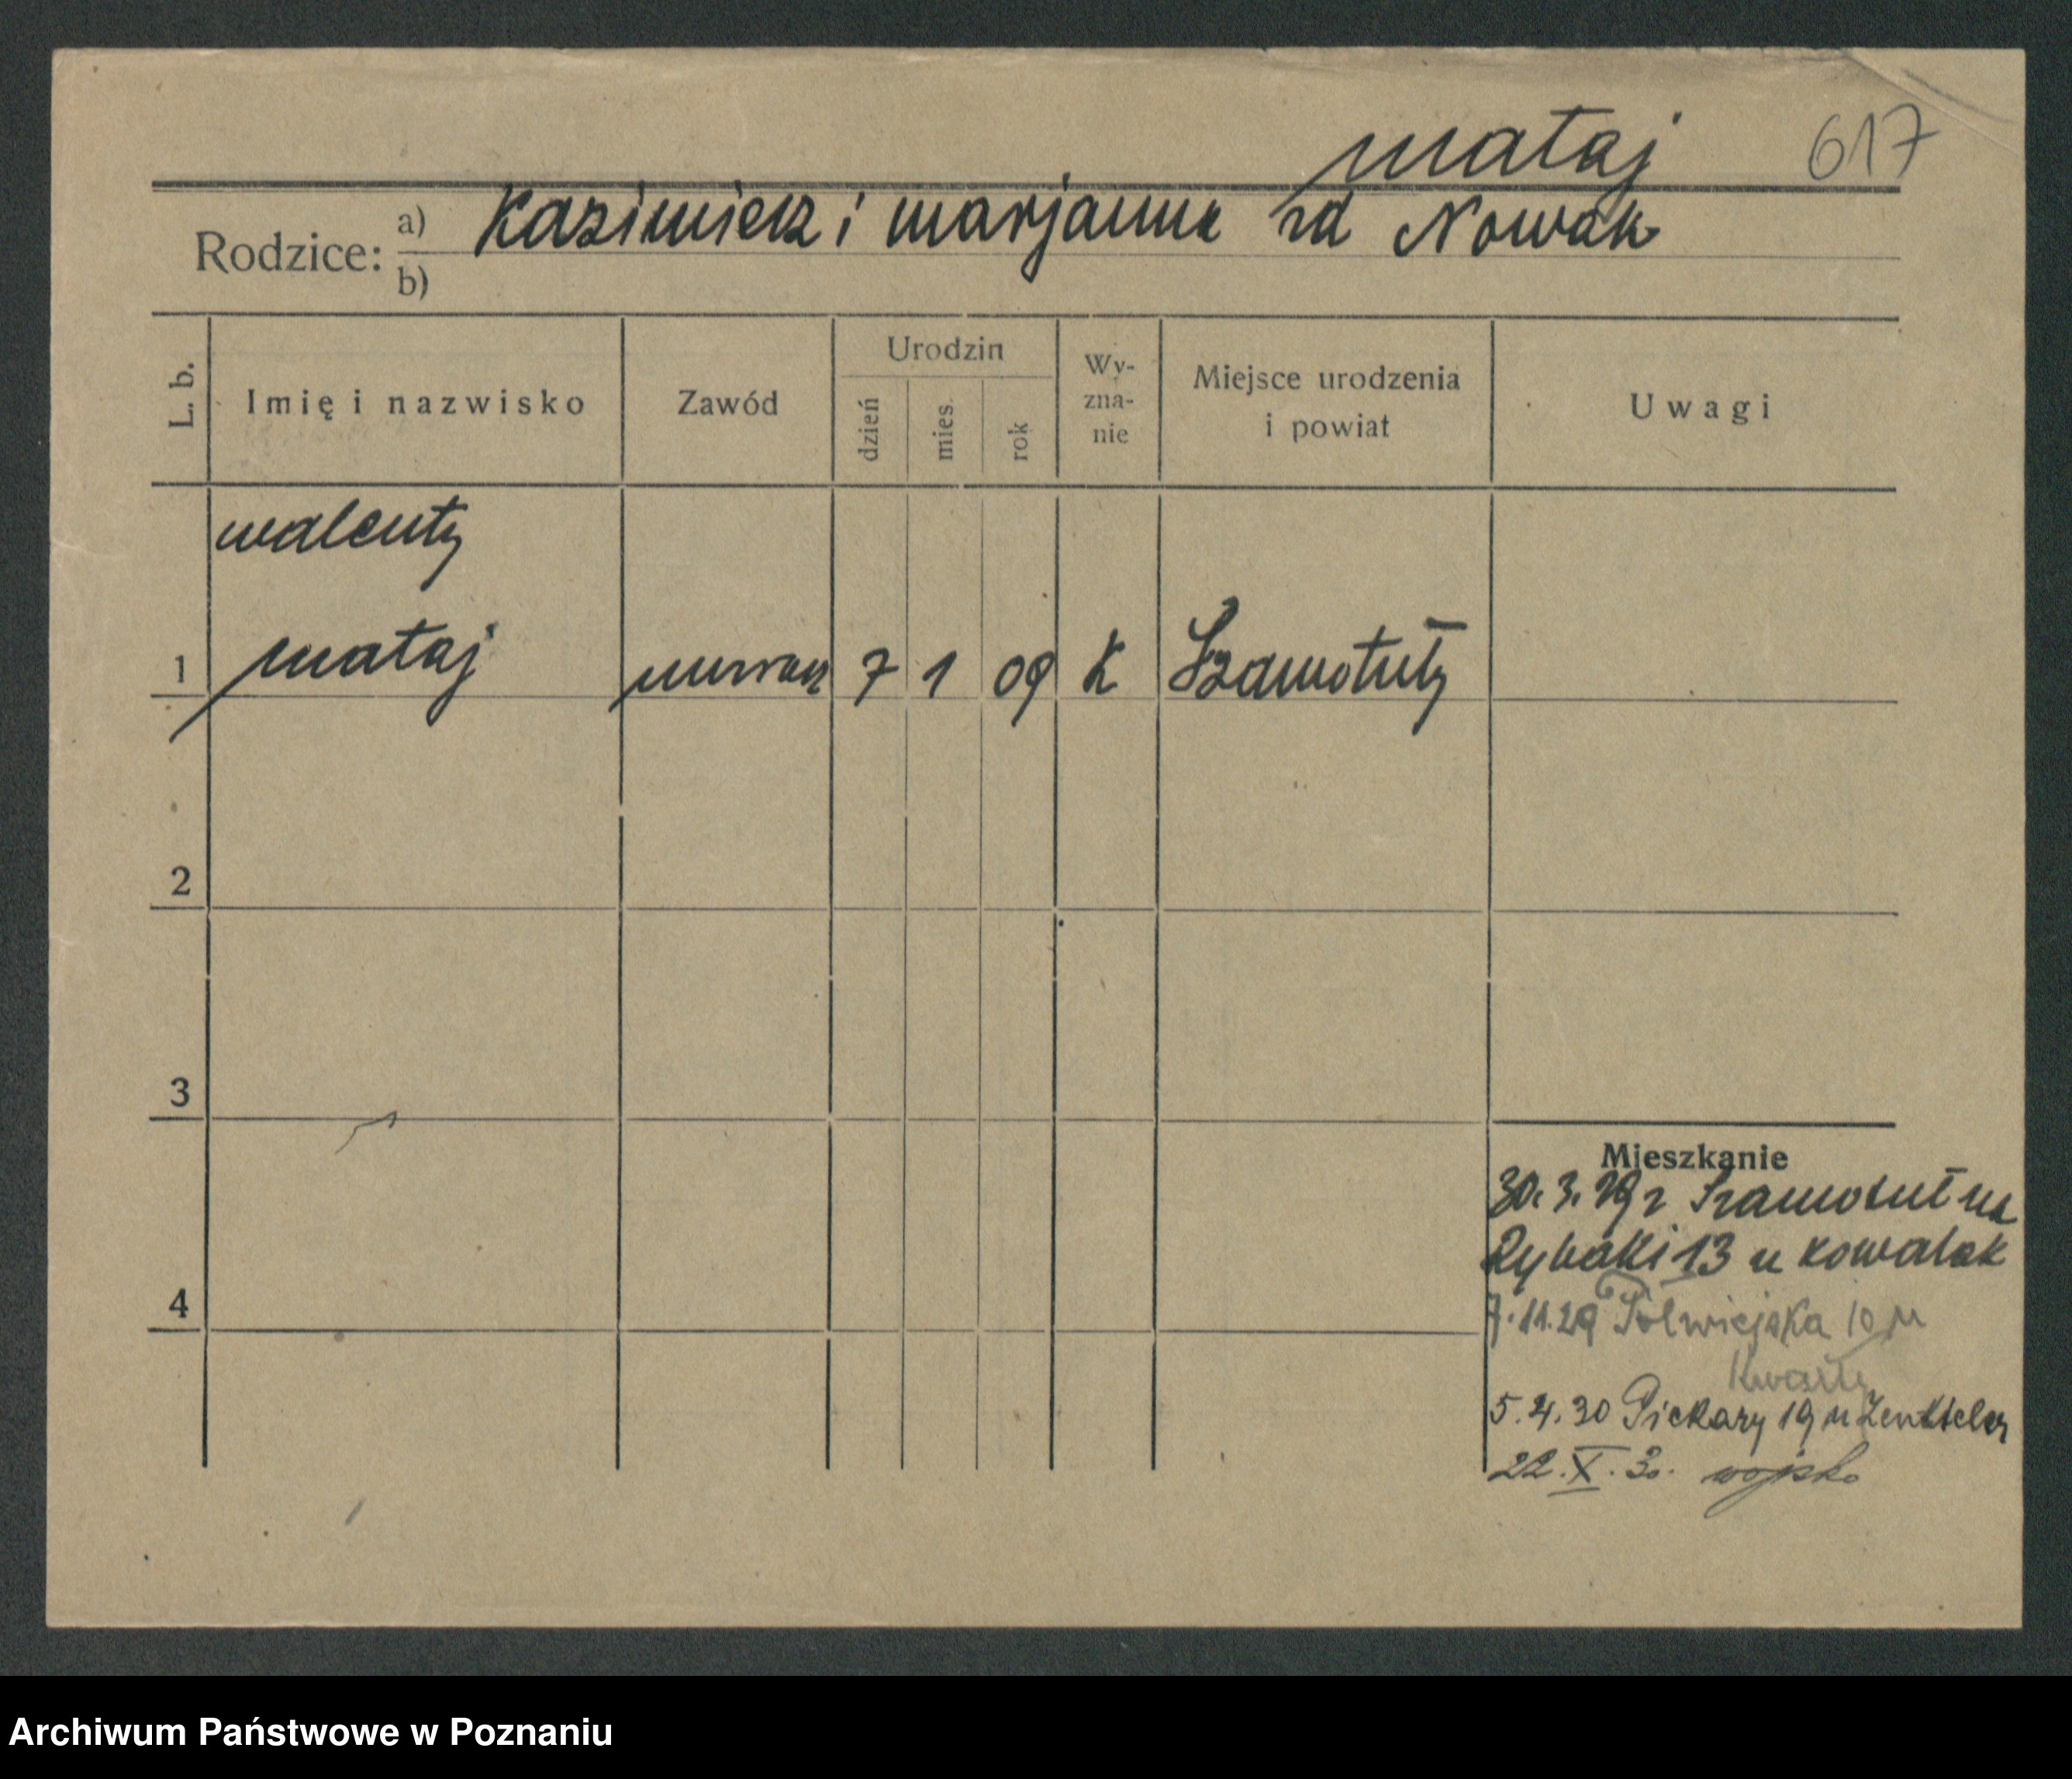 mataj 617
Rodzice: a) Kazimierz i marjanna zd Nowak
b)
L. b. Imię i nazwisko Zawód Urodzin dzień mies. rok Wy-zna-nie Miejsce urodzenia i powiat Uwagi
walenty
1 mataj murarz 7 1 09 K Szamotuły
2
3
Mieszkanie
30. 3. 29 z Szamotuł na
Rybaki 13 u Kowalak
4
7. 11. 29 Półwiejska 10 u
5. 4. 30 Piekary 19 u
22. X. 30. wojsko
Archiwum Państwowe w Poznaniu